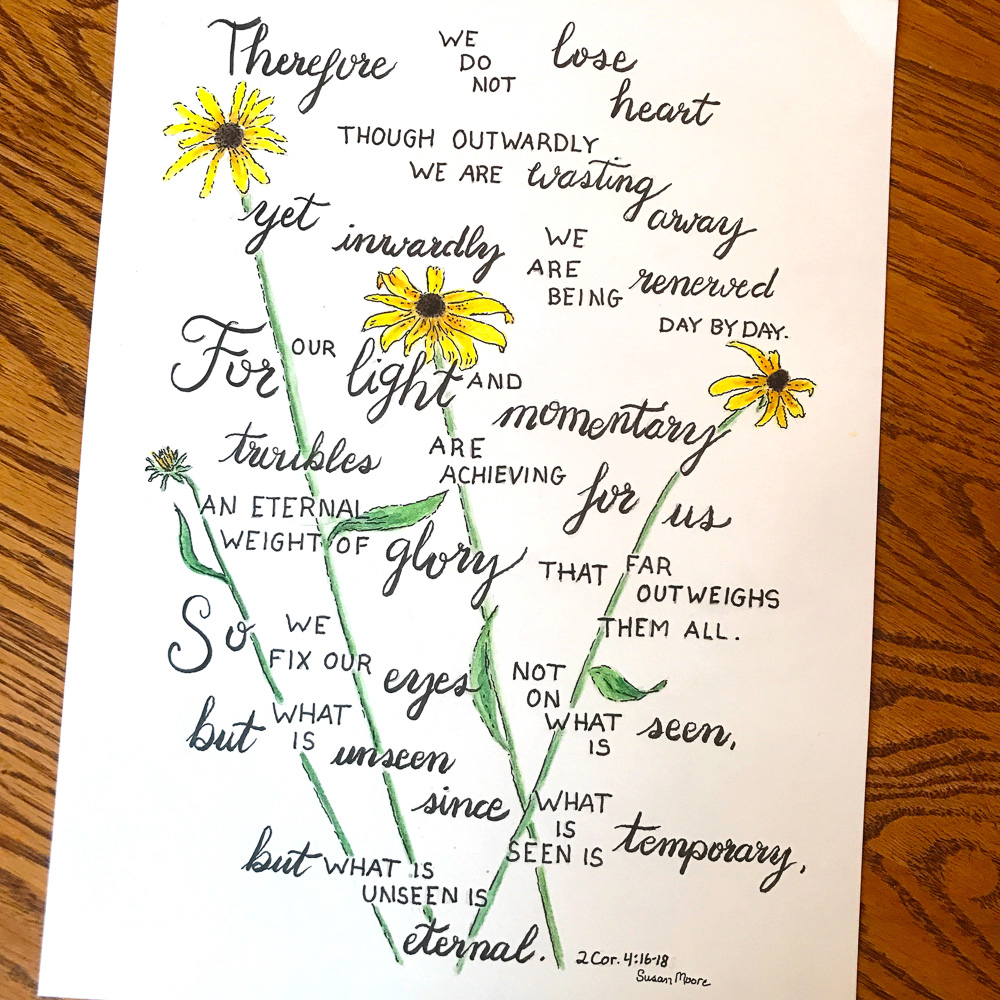 Therefore WE DO NOT lose heart
THOUGH OUTWARDLY
WE ARE wasting away
yet inwardly WE ARE BEING renewed
DAY BY DAY.
For OUR light AND momentary
troubles ARE ACHIEVING for us
AN ETERNAL
WEIGHT OF glory THAT FAR
OUTWEIGHS
THEM ALL.
So WE FIX OUR eyes NOT ON WHAT IS seen,
but WHAT IS unseen
since WHAT IS SEEN IS temporary,
but WHAT IS
UNSEEN IS
eternal.
2 Cor. 4:16-18
Susan Moore